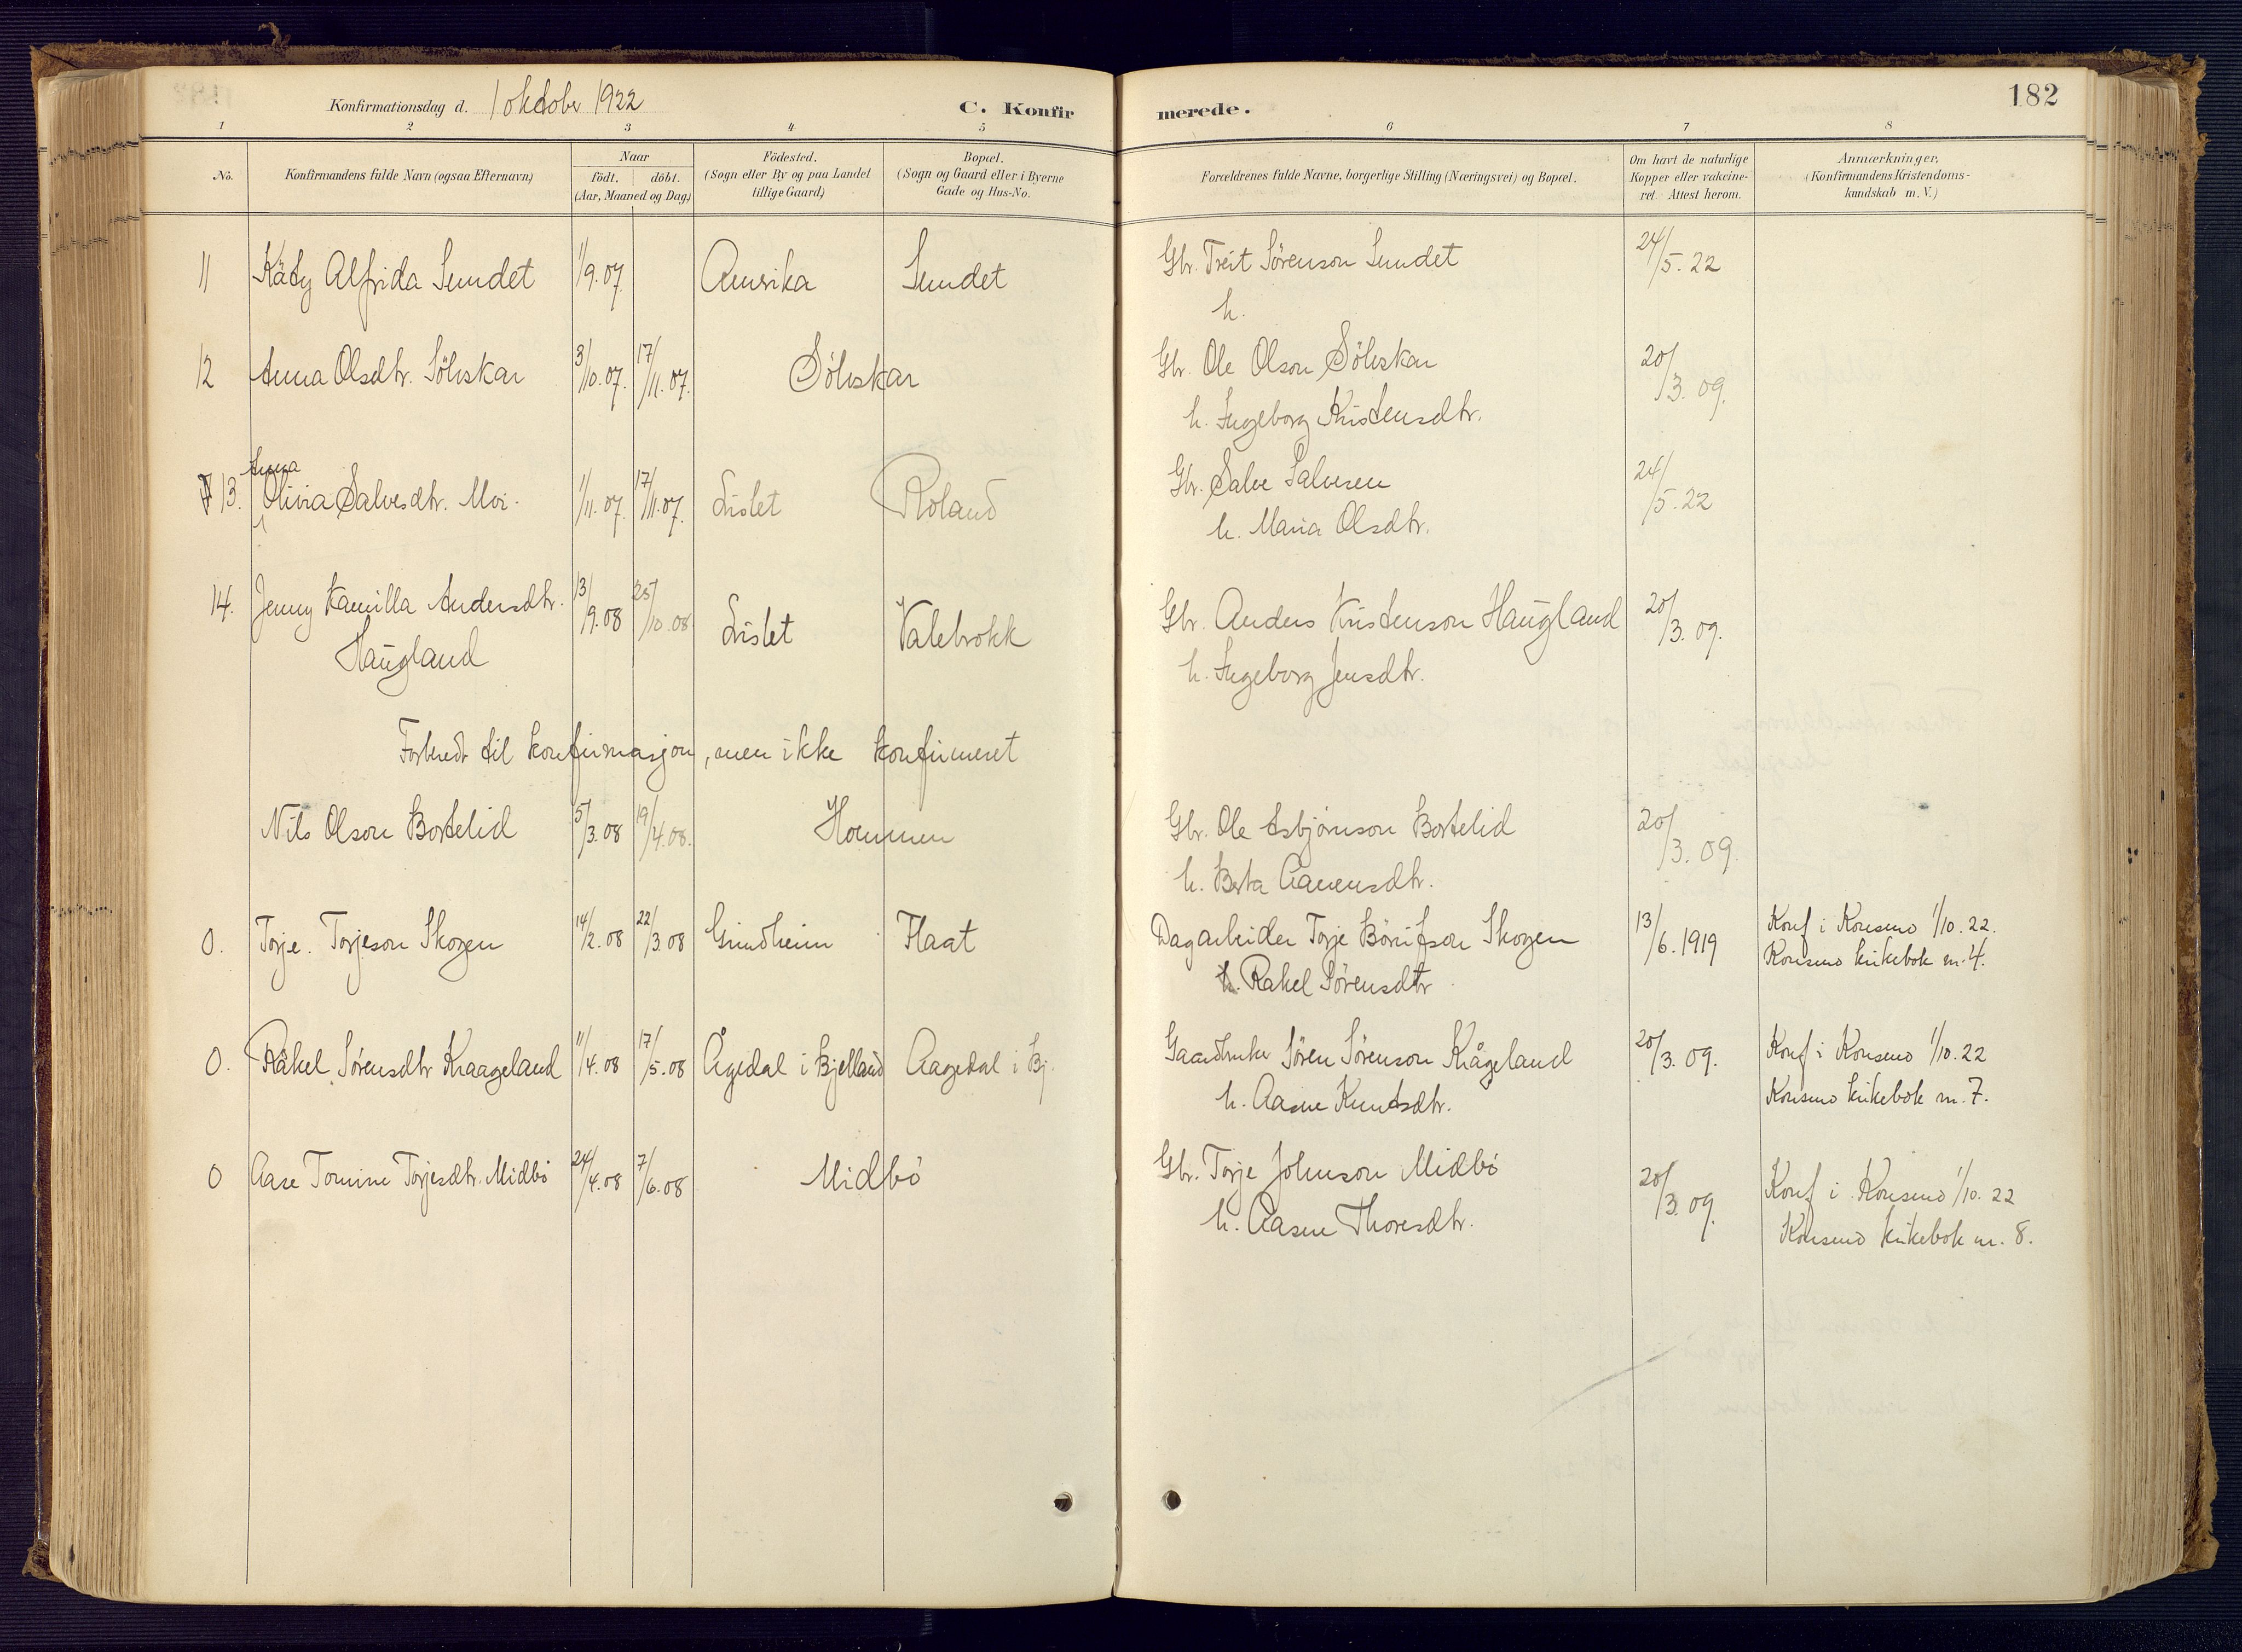 Konfirmationsdag d. 1 oktober 1922
C. Konfirmerede.
182
1 2 3 4 5 6 7 8
No.
Konfirmandens fulde Navn (ogsaa Efternavn)
Naar
födt. döbt.
(Aar, Maaned og Dag)
Födested.
(Sogn eller By og paa Landet
tillige Gaard)
Bopæl.
(Sogn og Gaard eller i Byerne
Gade og Hus-No.
Forældrenes fulde Navne, borgerlige Stilling (Næringsvei) og Bopæl.
Om havt de naturlige
Kopper eller vaccine-
ret. Attest herom.
Anmærkninger,
(Konfirmandens Kristendoms-
kundskab m. V.)
11 Käty Alfrida Sundet 1/9.07 Amerika Sundet Gbr. Treit Sørenson Sundet 24/5.22
h.
12 Anna Olsdtr. Sölvskar 3/10.07. 17/11.07. Sölvskar Gbr. Ole Olson Sölvskar 20/3.09.
h. Ingeborg Kristensdtr.
Anna
13. Olivia Salvesdtr. Moi. 1/11.07. 17/11.07. Lislet Roland Gbr. Salve Salvesen 24/5.22
h. Maria Olsdtr.
14. Jenny Kamilla Andersdtr. 13/9.08 25/10.08 Lislet Valebrokk Gbr. Anders Kristenson Haugland 20/3.09.
Haugland h. Ingeborg Jensdtr.
Forberedt til konfirmasjon, men ikke konfirmeret
Nils Olson Bortelid 5/3.08 19/4.08. Hommen Gbr. Ole Asbjørnson Bortelid 20/3.09.
h. Berta Aanensdtr.
0. Torje. Torjeson Skogen 14/2.08 22/3.08 Grindheim Flaat Dagarbeider Torje Bönifson Skogen 13/6.1919 Konf i Konsmo 1/10.22.
h. Rakel Sörensdtr Konsmo kirkebok nr. 4.
0. Råkel Sørensdtr Kraageland 11/4.08 17/5.08 Ågedal i Bjelland Aagedal i Bj. Gaardbruker Søren Sørenson Kågeland 20/3.09. Konf i Konsmo 1/10.22
h. Aasne Knutsdtr. Konsmo kirkebok nr. 7.
0 Aase Tomine Torjesdtr. Midbö 24/4.08 7/6.08 Midbö Gbr. Torje Johnson Midbö 20/3.09. Konf i Konsmo 1/10.22
h. Aasne Thoresdtr. Konsmo kirkebok nr. 8.